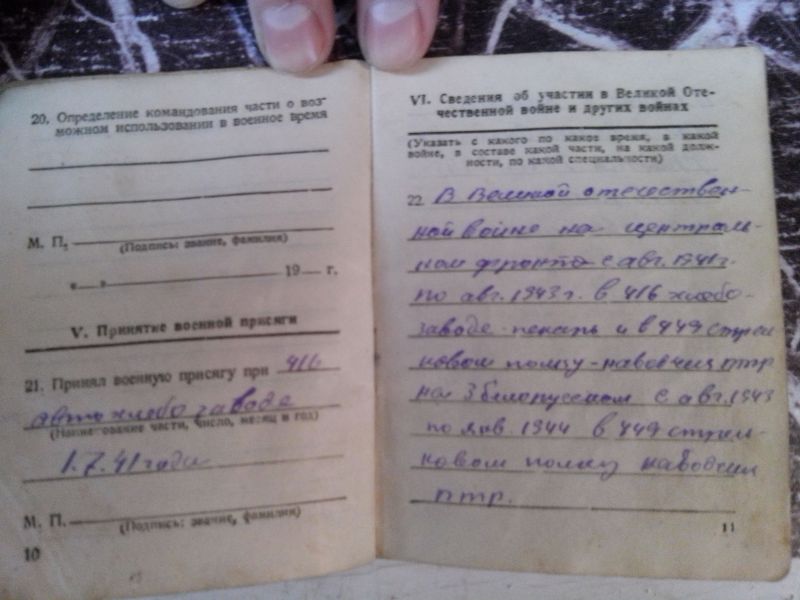 20. Определение командования части о воз-
можном использовании в военное время
М. П.
(Подпись: звание, фамилия)
"__" 19__ г.
V. Принятие военной присяги
21. Принял военную присягу при 416
автохлебозаводе
(Наименование части, число, месяц и год)
1.7.41 года
М. П.
(Подпись: звание, фамилия)
10
VI. Сведения об участии в Великой Оте-
чественной войне и других войнах
(Указать с какого по какое время, в какой
войне, в составе какой части, на какой долж-
ности, по какой специальности)
22 В Великой отечествен-
ной войне на централь-
ном фронте с авг. 1941г.
по авг. 1943 г. в 416 хлебо-
заводе - пекарь и в 449 стрел
ковом полку - наводчик птр
на 3 белорусском с авг. 1943
по янв. 1944 в 449 стрел-
ковом полку наводчик
птр.
11